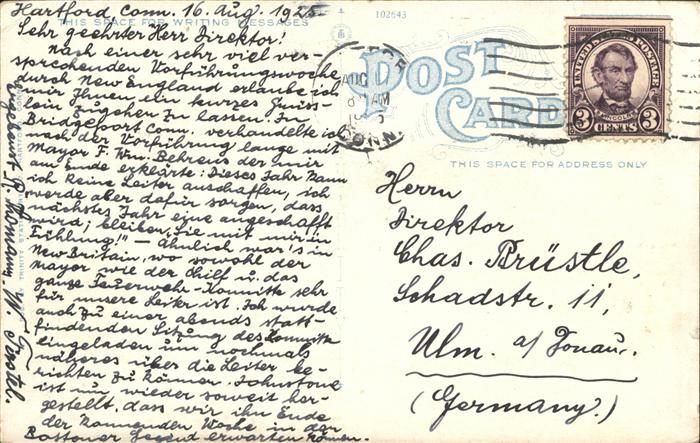 Hartford, Conn. 16. Aug. 1925
THIS SPACE FOR WRITING MESSAGES
Sehr geehrter Herr Direktor!
Nach einer sehr viel ver-
sprechenden Vorführungswoche
durch New England erlaube ich
mir Ihnen ein kurzes Griss-
lein zugehen zu lassen. In
Bridgeport Conn. verhandelte ich
nach der Vorführung lange mit
Mayor F. Wm. Behrens der mir
am Ende erklärte: Dieses Jahr kann
ich keine Leiter anschaffen, ich
werde aber dafür sorgen, dass
nächstes Jahr eine angeschafft
wird; bleiben Sie mit mir in
Fühlung!" — Ähnlich war's in
New Britain, wo sowohl der
Mayor wie der Chief u. das
ganze Feuerwehr-Komitte sehr
für unsere Leiter ist. Ich wurde
auch zu einer abends statt-
findenden Sitzung des Komitte
eingeladen um nochmals
näheres über die Leiter be-
richten zu können. Johnstone
ist nun wieder soweit her-
gestellt, dass wir ihn Ende
der kommenden Woche in der
Bostoner Gegend erwarten können.
102643
POST
CARD
THIS SPACE FOR ADDRESS ONLY
AUG
AM
CONN.
UNITED STATES POSTAGE
LINCOLN
3 CENTS 3
Herrn
Direktor
Chas. Brüstle,
Schadstr. 11,
Ulm. a/Donau.
(Germany.)